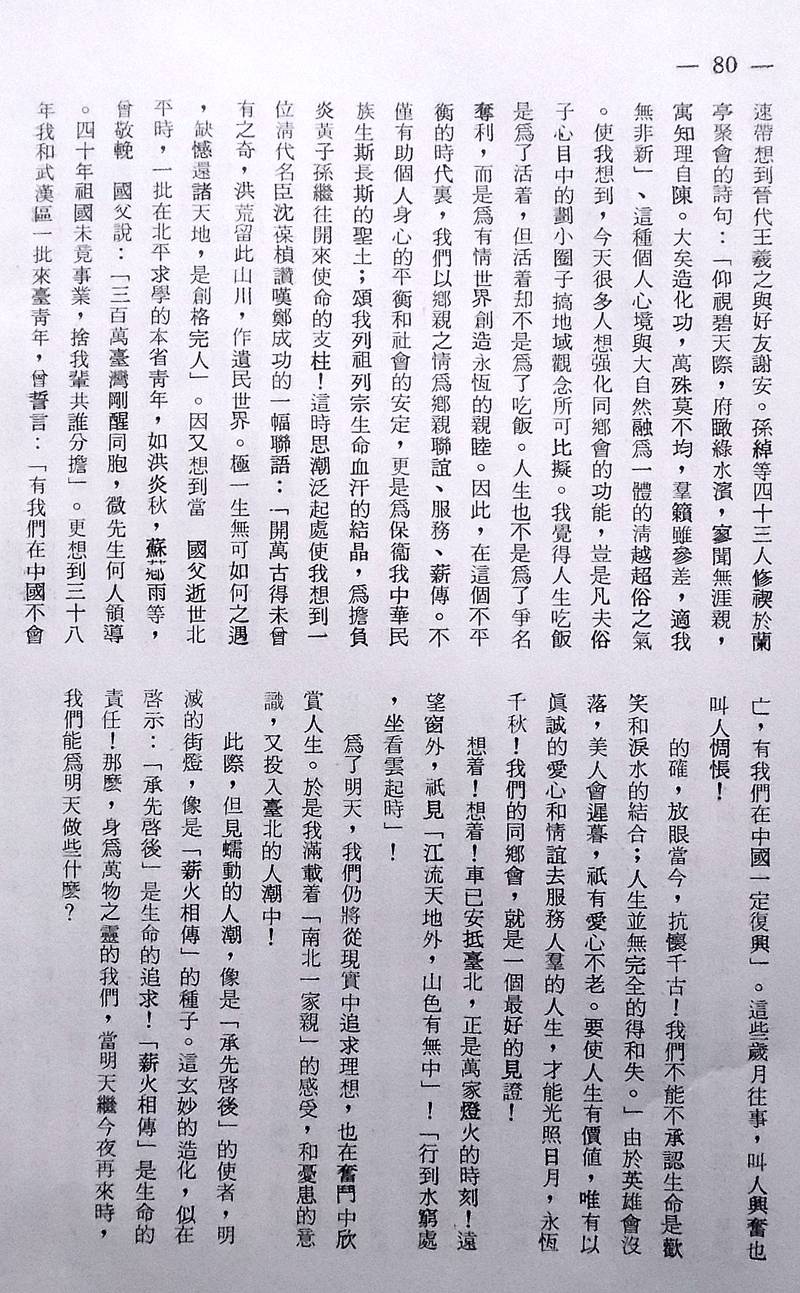 — 80 —
速帶想到晉代王羲之與好友謝安。孫綽等四十三人修禊於蘭
亭聚會的詩句：「仰視碧天際，府瞰綠水濱，寥聞無涯親，
寓知理自陳。大矣造化功，萬殊莫不均，羣籟雖參差，適我
無非新」、這種個人心境與大自然融爲一體的淸越超俗之氣
。使我想到，今天很多人想强化同鄉會的功能，豈是凡夫俗
子心目中的劃小圈子搞地域觀念所可比擬。我覺得人生吃飯
是爲了活着，但活着却不是爲了吃飯。人生也不是爲了爭名
奪利，而是爲有情世界創造永恆的親睦。因此，在這個不平
衡的時代裏，我們以鄉親之情爲鄉親聯誼、服務、薪傳。不
僅有助個人身心的平衡和社會的安定，更是爲保衞我中華民
族生斯長斯的聖土；頌我列祖列宗生命血汗的結晶，爲擔負
炎黃子孫繼往開來使命的支柱！這時思潮泛起處使我想到一
位淸代名臣沈葆楨讚嘆鄭成功的一幅聯語：「開萬古得未曾
有之奇，洪荒留此山川，作遺民世界。極一生無可如何之遇
，缺憾還諸天地，是創格完人」。因又想到當　國父逝世北
平時，一批在北平求學的本省靑年，如洪炎秋，蘇薌雨等，
曾敬輓　國父說：「三百萬臺灣剛醒同胞，微先生何人領導
。四十年祖國未竟事業，捨我輩共誰分擔」。更想到三十八
年我和武漢區一批來臺靑年，曾誓言：「有我們在中國不會
亡，有我們在中國一定復興」。這些歲月往事，叫人興奮也
叫人惆悵！
的確，放眼當今，抗懷千古！我們不能不承認生命是歡
笑和淚水的結合；人生並無完全的得和失。」由於英雄會沒
落，美人會遲暮，祇有愛心不老。要使人生有價値，唯有以
眞誠的愛心和情誼去服務人羣的人生，才能光照日月，永恆
千秋！我們的同鄉會，就是一個最好的見證！
想着！想着！車已安抵臺北，正是萬家燈火的時刻！遠
望窗外，祇見「江流天地外，山色有無中」！「行到水窮處
，坐看雲起時」！
爲了明天，我們仍將從現實中追求理想，也在奮鬥中欣
賞人生。於是我滿載着「南北一家親」的感受，和憂患的意
識，又投入臺北的人潮中！
此際，但見蠕動的人潮，像是「承先啓後」的使者，明
滅的街燈，像是「薪火相傳」的種子。這玄妙的造化，似在
啓示：「承先啓後」是生命的追求！「薪火相傳」是生命的
責任！那麽，身爲萬物之靈的我們，當明天繼今夜再來時，
我們能爲明天做些什麽？